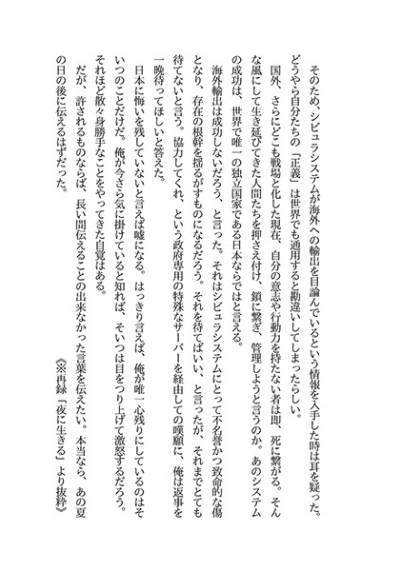 そのため、シビュラシステムが海外への輸出を目論んでいるという情報を入手した時は耳を疑った。
どうやら自分たちの「正義」は世界でも通用すると勘違いしてしまったらしい。
国外、さらにどこも戦場と化した現在、自分の意志や行動力を持たない者は即、死に繋がる。そん
な風にして生き延びてきた人間たちを押さえ付け、鎖に繋ぎ、管理しようと言うのか。あのシステム
の成功は、世界で唯一の独立国家である日本ならではと言える。
海外輸出は成功しないだろう、と言った。それはシビュラシステムにとって不名誉かつ致命的な傷
となり、存在の根幹を揺るがすものになるだろう。それを待てばいい、と言ったが、それまでとても
待てないと言う。協力してくれ、という政府専用の特殊なサーバーを経由しての嘆願に、俺は返事を
一晩待ってほしいと答えた。
日本に悔いを残していないと言えば嘘になる。はっきり言えば、俺が唯一心残りにしているのはそ
いつのことだけだ。俺が今さら気に掛けていると知れば、そいつは目をつり上げて激怒するだろう。
それほど散々身勝手なことをやってきた自覚はある。
だが、許されるものならば、長い間伝えることの出来なかった言葉を伝えたい。本当なら、あの夏
の日の後に伝えるはずだった。
《※再録「夜に生きる」より抜粋》